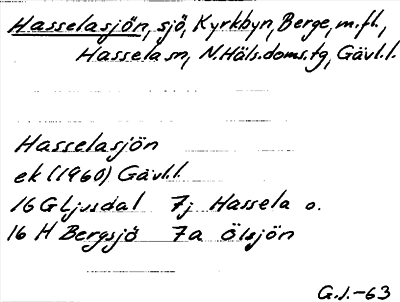 Hasselasjön, sjö, Kyrkbyn, Berge, m.fl.,
Hassela sn, N.Häls.doms.tg, Gävl.l.
Hasselasjön
ek (1960) Gävl.l.
16 G Ljusdal 7j Hassela o.
16 H Bergsjö 7a Ölsjön
G.I.-63